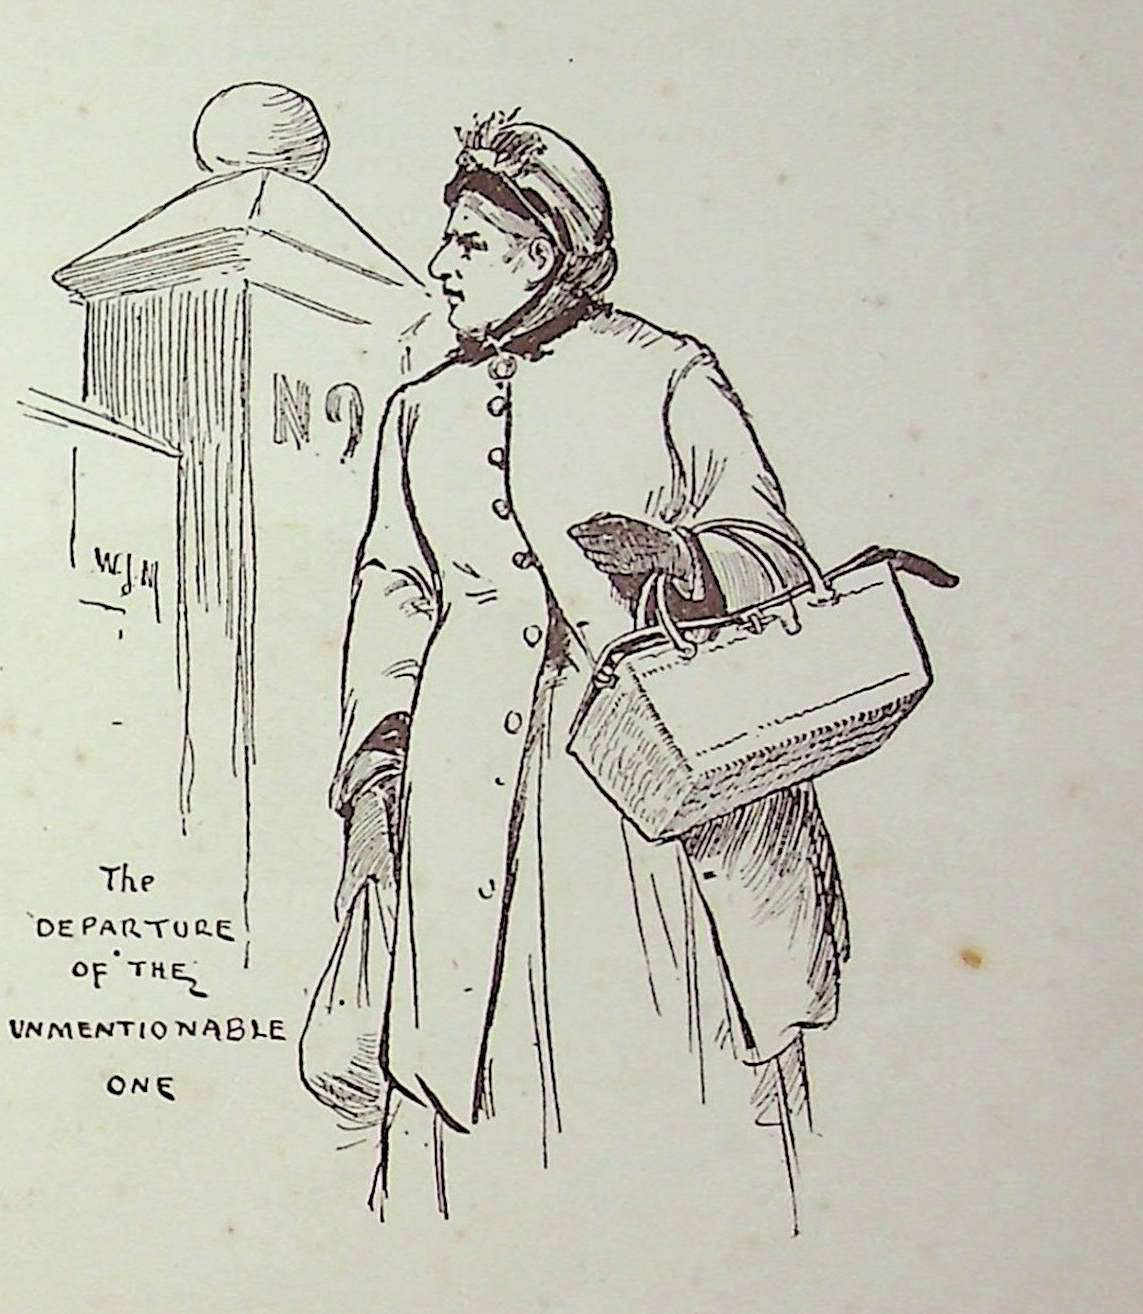 Nº 9
W.J.M
The
DEPARTURE
OF THE
UNMENTIONABLE
ONE